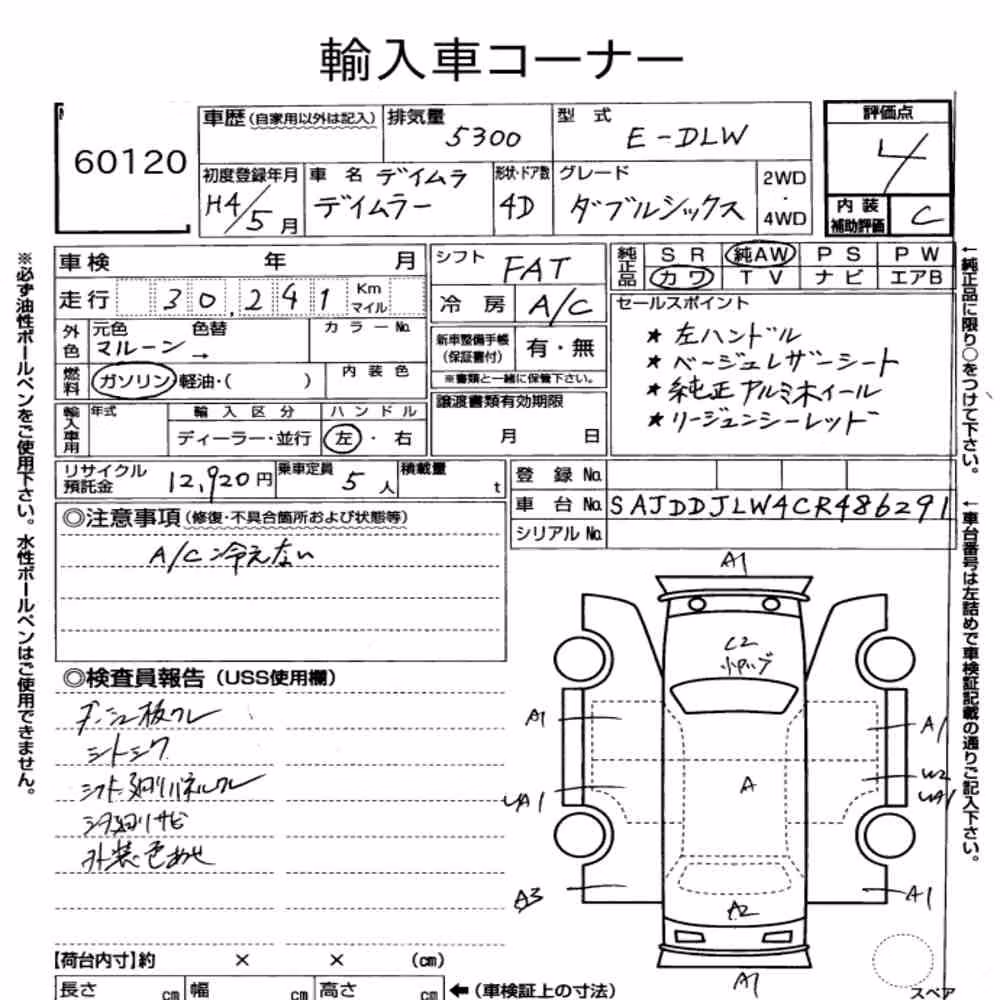 輸入車コーナー
60120
車歴(自家用以外は記入) 排気量 5300 型式 E-DLW 評価点 4
初度登録年月 H4/5月 車名 デイムラ デイムラー 形状・ドア数 4D グレード ダブルシックス 2WD・4WD 内装補助評価 C
車検 年 月 シフト FAT 純正品 SR 純AW PS PW
カワ TV ナビ エアB
走行 30,241 Km マイル 冷房 A/C セールスポイント
外色 元色 マルーン → 色替 カラーNo. 新車整備手帳(保証書付) 有・無
★左ハンドル
★ベージュレザーシート
★純正アルミホイール
★リージェンシーレッド
燃料 ガソリン 軽油・( ) 内装色 ※書類と一緒に保管下さい。
輸入車用 年式 輸入区分 ディーラー・並行 ハンドル 左・右 譲渡書類有効期限 月 日
リサイクル預託金 12,920円 乗車定員 5人 積載量 t 登録No.
車台No. SAJDDJLW4CR486291
シリアルNo.
◎注意事項(修復・不具合箇所および状態等)
A/C冷えない
◎検査員報告(USS使用欄)
ダッシュ板ワレ
シートシワ
シフト廻りパネルワレ
下廻りサビ
外装色あせ
A1
C2
A1
A1
A
UA1
W2
UA1
A3
A1
A2
A1
スペア
【荷台内寸】約 × × (cm)
長さ cm 幅 cm 高さ cm ←(車検証上の寸法)
※必ず油性ボールペンをご使用下さい。水性ボールペンはご使用できません。
←純正品に限り○をつけて下さい。
←車台番号は左詰めで車検証記載の通りご記入下さい。